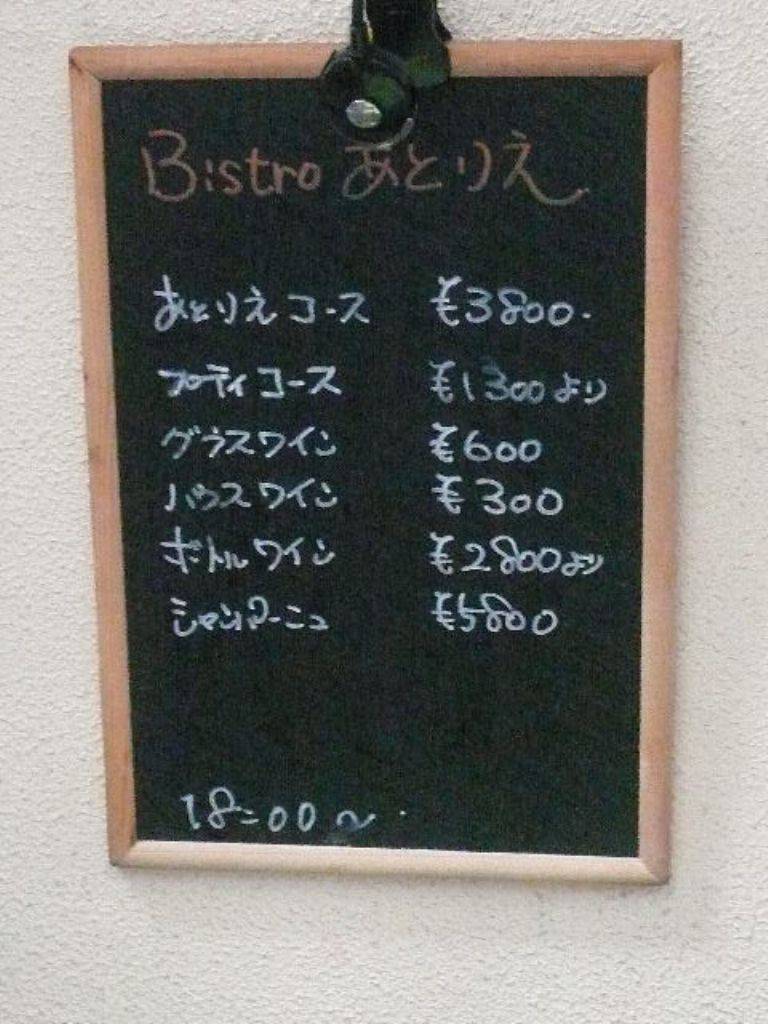 Bistro あとりえ
あとりえコース ¥3800.
プティコース ¥1300より
グラスワイン ¥600
ハウスワイン ¥300
ボトルワイン ¥2800より
シャンパーニュ ¥5800
18:00〜